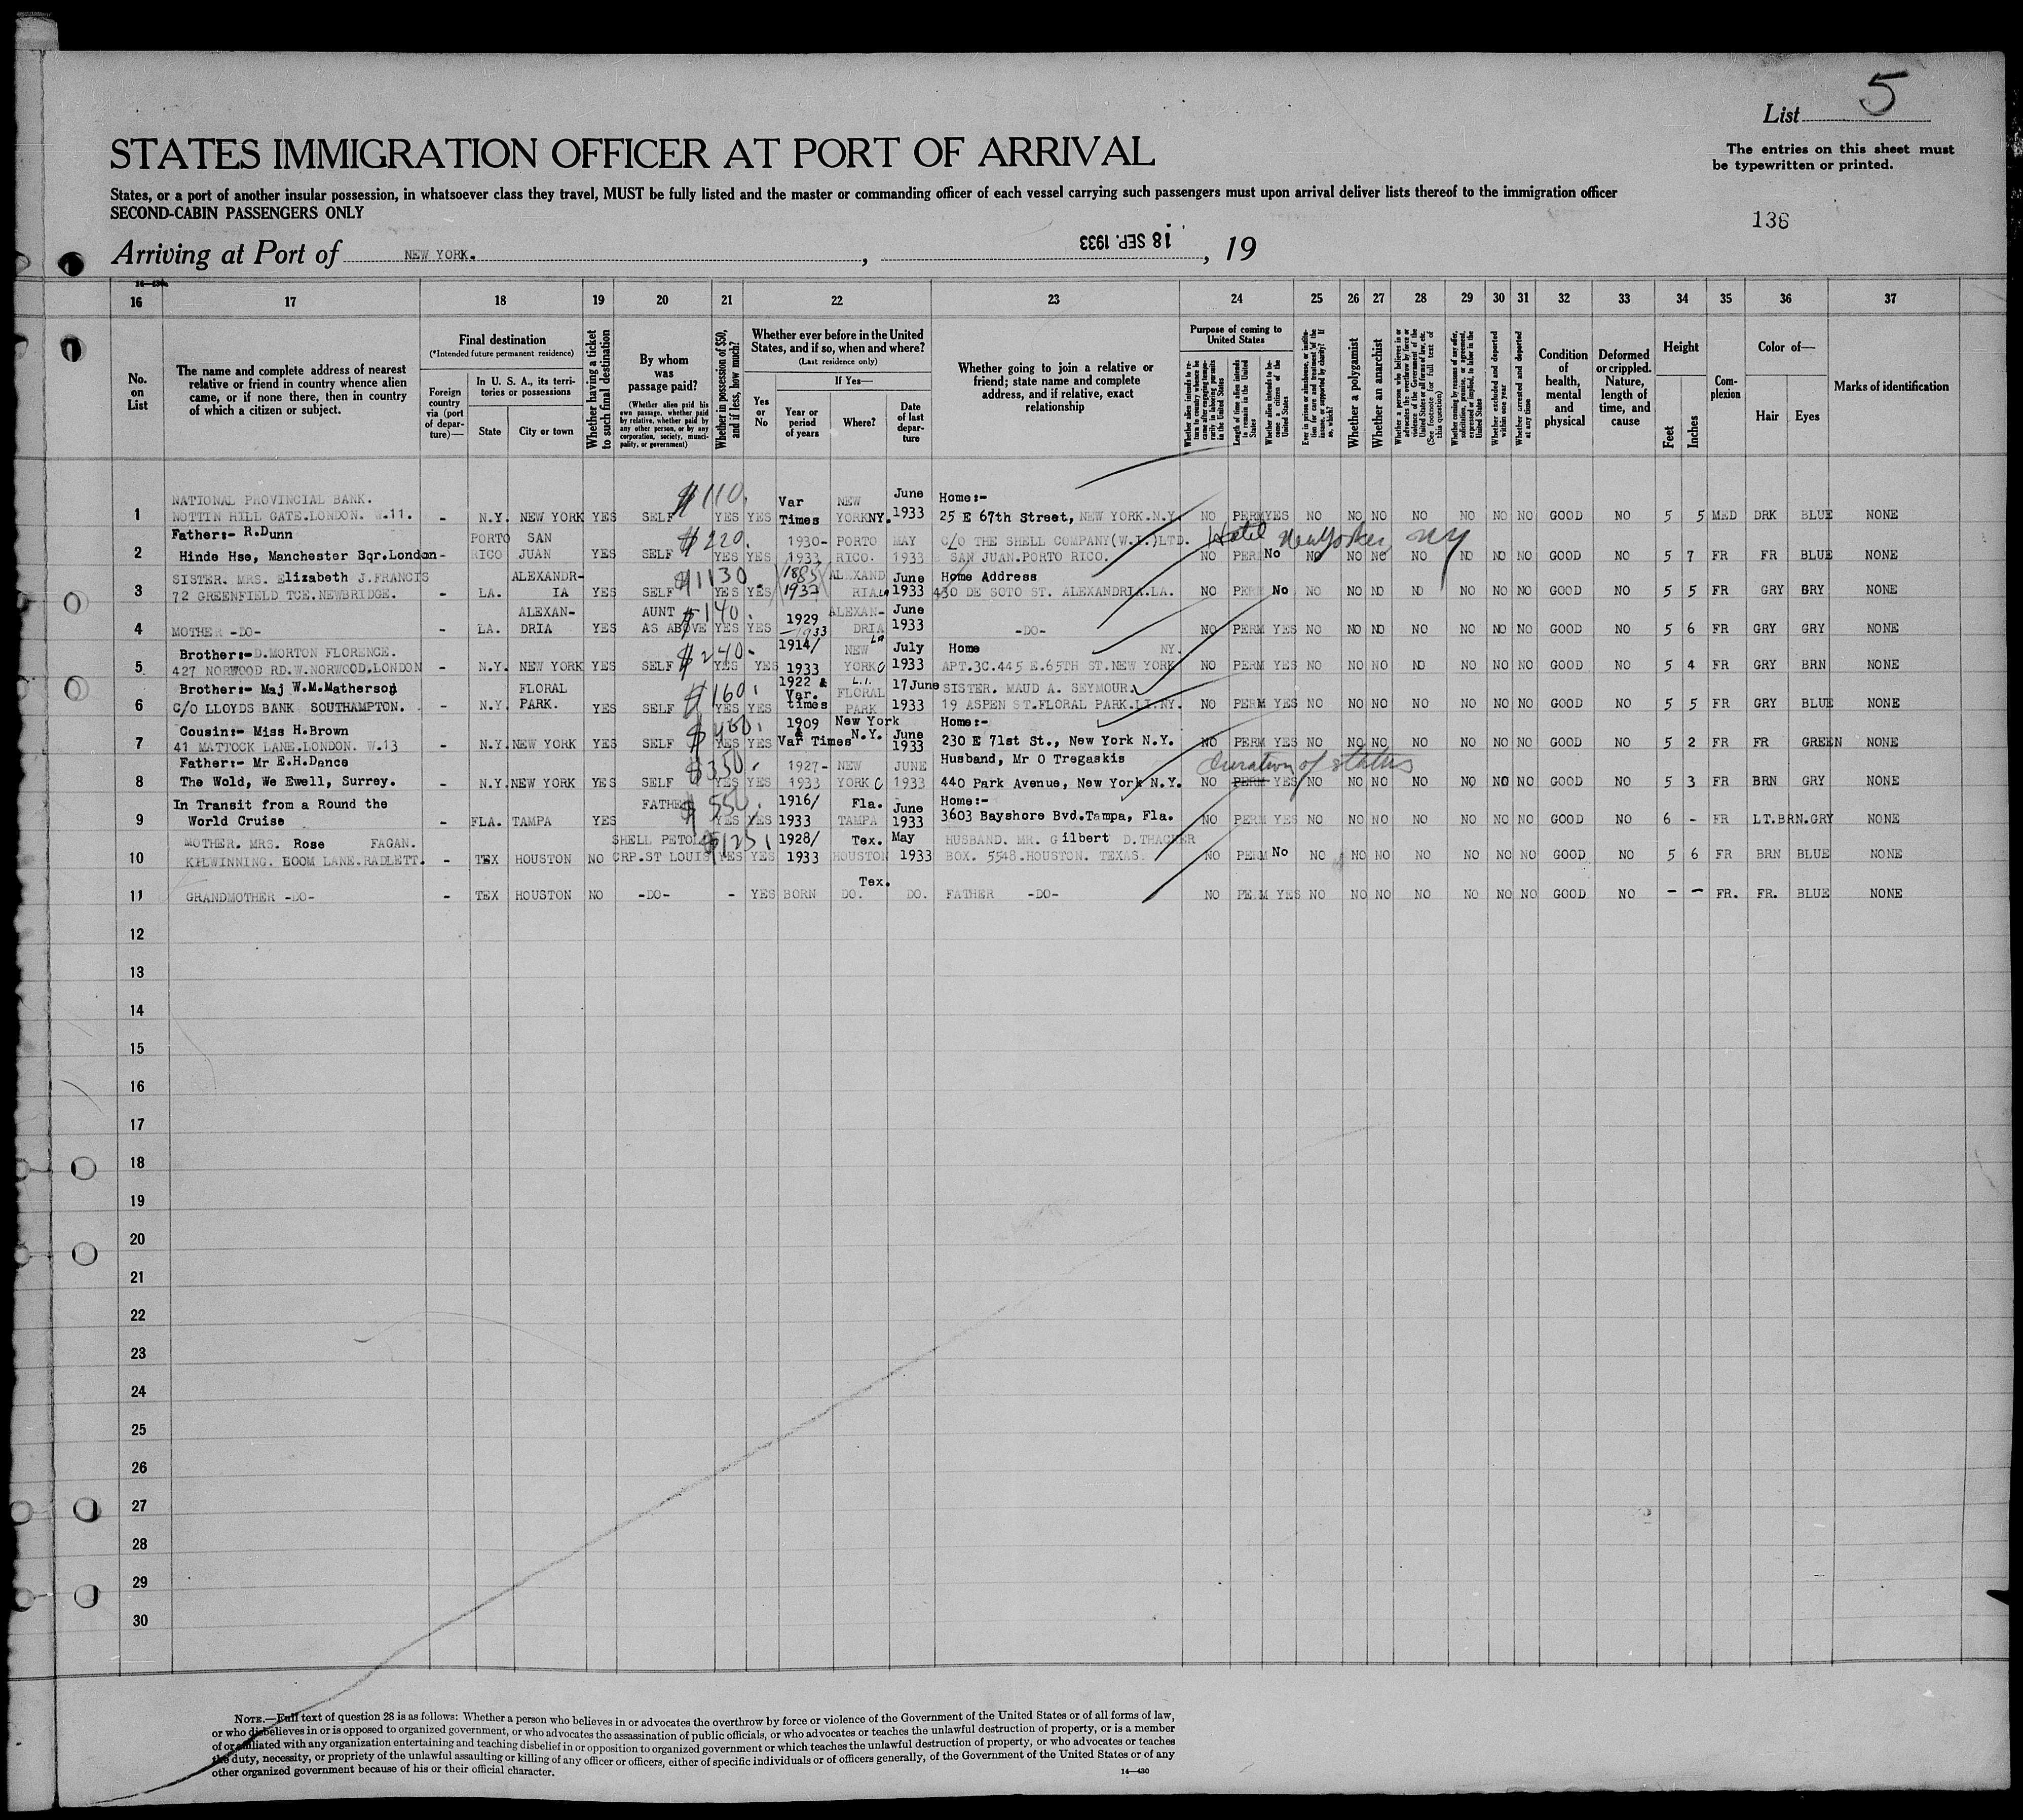 List 5
STATES IMMIGRATION OFFICER AT PORT OF ARRIVAL
The entries on this sheet must
be typewritten or printed.
States, or a port of another insular possession, in whatsoever class they travel, MUST be fully listed and the master or commanding officer of each vessel carrying such passengers must upon arrival deliver lists thereof to the immigration officer
SECOND-CABIN PASSENGERS ONLY
136
Arriving at Port of NEW YORK. , 18 SEP. 1933 , 19
16 17 18 19 20 21 22 23 24 25 26 27 28 29 30 31 32 33 34 35 36 37
No. on List
The name and complete address of nearest
relative or friend in country whence alien
came, or if none there, then in country
of which a citizen or subject.
Final destination
(*Intended future permanent residence)
Foreign country via (port of departure)—
In U. S. A., its territories or possessions
State City or town
Whether having a ticket to such final destination
By whom was passage paid?
(Whether alien paid his own passage, whether paid by relative, whether paid by any other person, or by any corporation, society, municipality, or government)
Whether in possession of $50, and if less, how much?
Whether ever before in the United
States, and if so, when and where?
(Last residence only)
Yes or No
If Yes—
Year or period of years
Where?
Date of last departure
Whether going to join a relative or
friend; state name and complete
address, and if relative, exact
relationship
Purpose of coming to
United States
Length of time alien intends to remain in the United States
Whether alien intends to become a citizen of the United States
Whether a polygamist
Whether an anarchist
Whether excluded and deported within one year
Whether arrested and deported at any time
Condition of health, mental and physical
Deformed or crippled. Nature, length of time, and cause
Height
Feet Inches
Complexion
Color of—
Hair Eyes
Marks of identification
NATIONAL PROVINCIAL BANK. $110. Var NEW June Home:-
1 NOTTIN HILL GATE.LONDON. W.11. - N.Y. NEW YORK YES SELF YES YES Times YORK NY. 1933 25 E 67th Street, NEW YORK.N.Y. NO PERM YES NO NO NO NO NO NO NO GOOD NO 5 5 MED DRK BLUE NONE
Father:- R.Dunn PORTO SAN $220. 1930- PORTO MAY C/O THE SHELL COMPANY(W.I.)LTD. Hotel New Yorker, NY
2 Hinde Hse, Manchester Sqr.London- RICO JUAN YES SELF YES YES 1933 RICO. 1933 SAN JUAN.PORTO RICO. NO PERM No NO NO NO NO NO NO NO GOOD NO 5 7 FR FR BLUE NONE
SISTER. MRS. Elizabeth J.FRANCIS ALEXANDR- $1130. 1885 ALEXAND June Home Address
3 72 GREENFIELD TCE.NEWBRIDGE. - LA. IA YES SELF YES YES RIA La 1933 430 DE SOTO ST. ALEXANDRIA.LA. NO PERM No NO NO NO NO NO NO NO GOOD NO 5 5 FR GRY GRY NONE
ALEXAN- AUNT $140. 1929 ALEXAN- June
4 MOTHER -DO- - LA. DRIA YES AS ABOVE YES YES -1933 DRIA La 1933 -DO- NO PERM YES NO NO NO NO NO NO NO GOOD NO 5 6 FR GRY GRY NONE
Brother:-D.MORTON FLORENCE. $240- 1914/ NEW July Home NY.
5 427 NORWOOD RD.W.NORWOOD.LONDON - N.Y. NEW YORK YES SELF YES YES 1933 YORK 1933 APT.3C.445 E.65TH ST.NEW YORK NO PERM YES NO NO NO NO NO NO NO GOOD NO 5 4 FR GRY BRN NONE
Brother:- Maj W.M.Matherson FLORAL $160. 1922 & Var. L.I. FLORAL 17June SISTER. MAUD A. SEYMOUR.
6 C/O LLOYDS BANK SOUTHAMPTON. - N.Y. PARK. YES SELF YES YES times PARK 1933 19 ASPEN ST.FLORAL PARK.LI.NY. NO PERM YES NO NO NO NO NO NO NO GOOD NO 5 5 FR GRY BLUE NONE
Cousin:- Miss H.Brown $400. 1909 & New York June Home:-
7 41 MATTOCK LANE.LONDON. W.13 - N.Y. NEW YORK YES SELF YES YES Var Times N.Y. 1933 230 E 71st St., New York N.Y. NO PERM YES NO NO NO NO NO NO NO GOOD NO 5 2 FR FR GREEN NONE
Father:- Mr E.H.Dance $350. 1927- NEW JUNE Husband, Mr O Tregaskis Duration of status
8 The Wold, We Ewell, Surrey. - N.Y. NEW YORK YES SELF YES YES 1933 YORK 1933 440 Park Avenue, New York N.Y. NO PERM YES NO NO NO NO NO NO NO GOOD NO 5 3 FR BRN GRY NONE
In Transit from a Round the FATHER $550. 1916/ Fla. June Home:-
9 World Cruise - FLA. TAMPA YES YES YES 1933 TAMPA 1933 3603 Bayshore Bvd.Tampa, Fla. NO PERM YES NO NO NO NO NO NO NO GOOD NO 6 - FR LT.BRN.GRY NONE
MOTHER. MRS. Rose FAGAN. SHELL PETOL $125 1928/ Tex. May HUSBAND. MR. Gilbert D.THACKER
10 KILWINNING. LOOM LANE.RADLETT. - TEX HOUSTON NO CRP.ST LOUIS YES YES 1933 HOUSTON 1933 BOX. 5548.HOUSTON. TEXAS. NO PERM No NO NO NO NO NO NO NO GOOD NO 5 6 FR BRN BLUE NONE
Tex.
11 GRANDMOTHER -DO- - TEX HOUSTON NO -DO- - YES BORN DO. DO. FATHER -DO- NO PERM YES NO NO NO NO NO NO NO GOOD NO - - FR. FR. BLUE NONE
12
13
14
15
16
17
18
19
20
21
22
23
24
25
26
27
28
29
30
NOTE.—Full text of question 28 is as follows: Whether a person who believes in or advocates the overthrow by force or violence of the Government of the United States or of all forms of law,
or who disbelieves in or is opposed to organized government, or who advocates the assassination of public officials, or who advocates or teaches the unlawful destruction of property, or is a member
of or affiliated with any organization entertaining and teaching disbelief in or opposition to organized government or which teaches the unlawful destruction of property, or who advocates or teaches
the duty, necessity, or propriety of the unlawful assaulting or killing of any officer or officers, either of specific individuals or of officers generally, of the Government of the United States or of any
other organized government because of his or their official character.
14—430